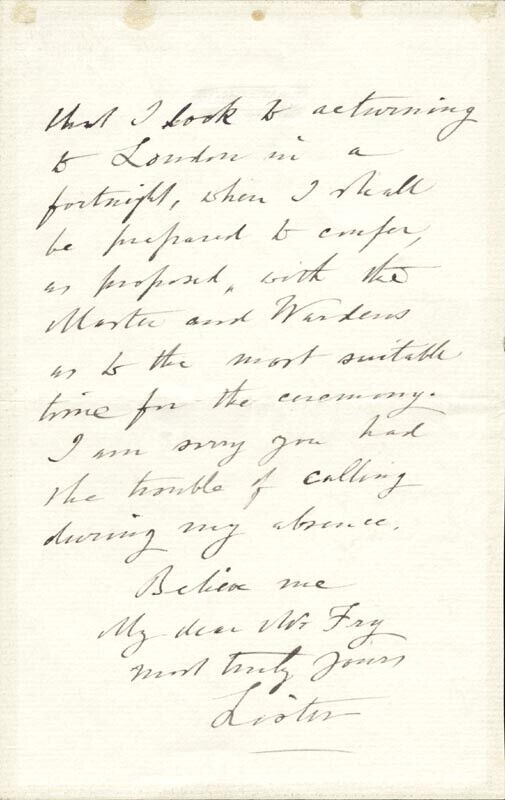 that I look to returning
to London in a
fortnight, when I shall
be prepared to confer,
as proposed, with the
Master and Wardens
as to the most suitable
time for the ceremony.
I am sorry you had
the trouble of calling
during my absence.
Believe me
My dear Mr Fry
most truly yours
Lister